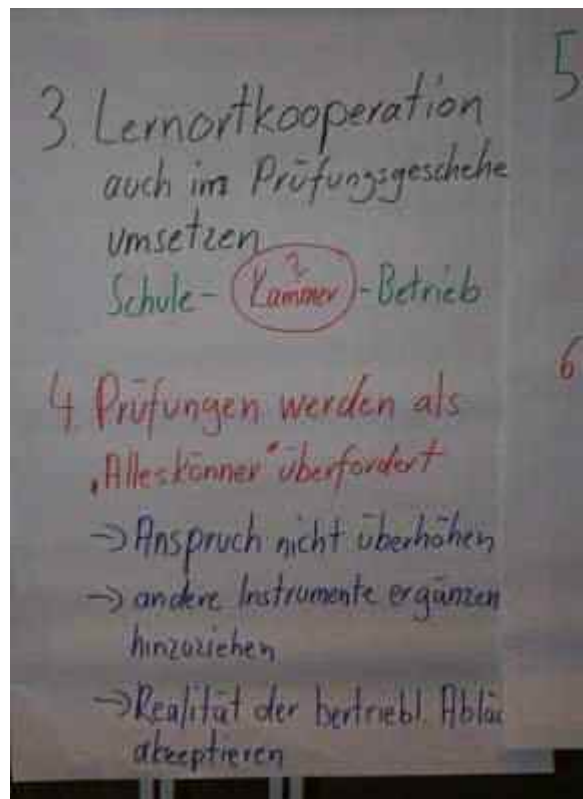 3. Lernortkooperation
auch im Prüfungsgeschehe
umsetzen
?
Schule - Kammer - Betrieb
4. Prüfungen werden als
„Alleskönner" überfordert
-> Anspruch nicht überhöhen
-> andere Instrumente ergänzen
hinzuziehen
-> Realität der bertriebl. Abläu
akzeptieren
5
6